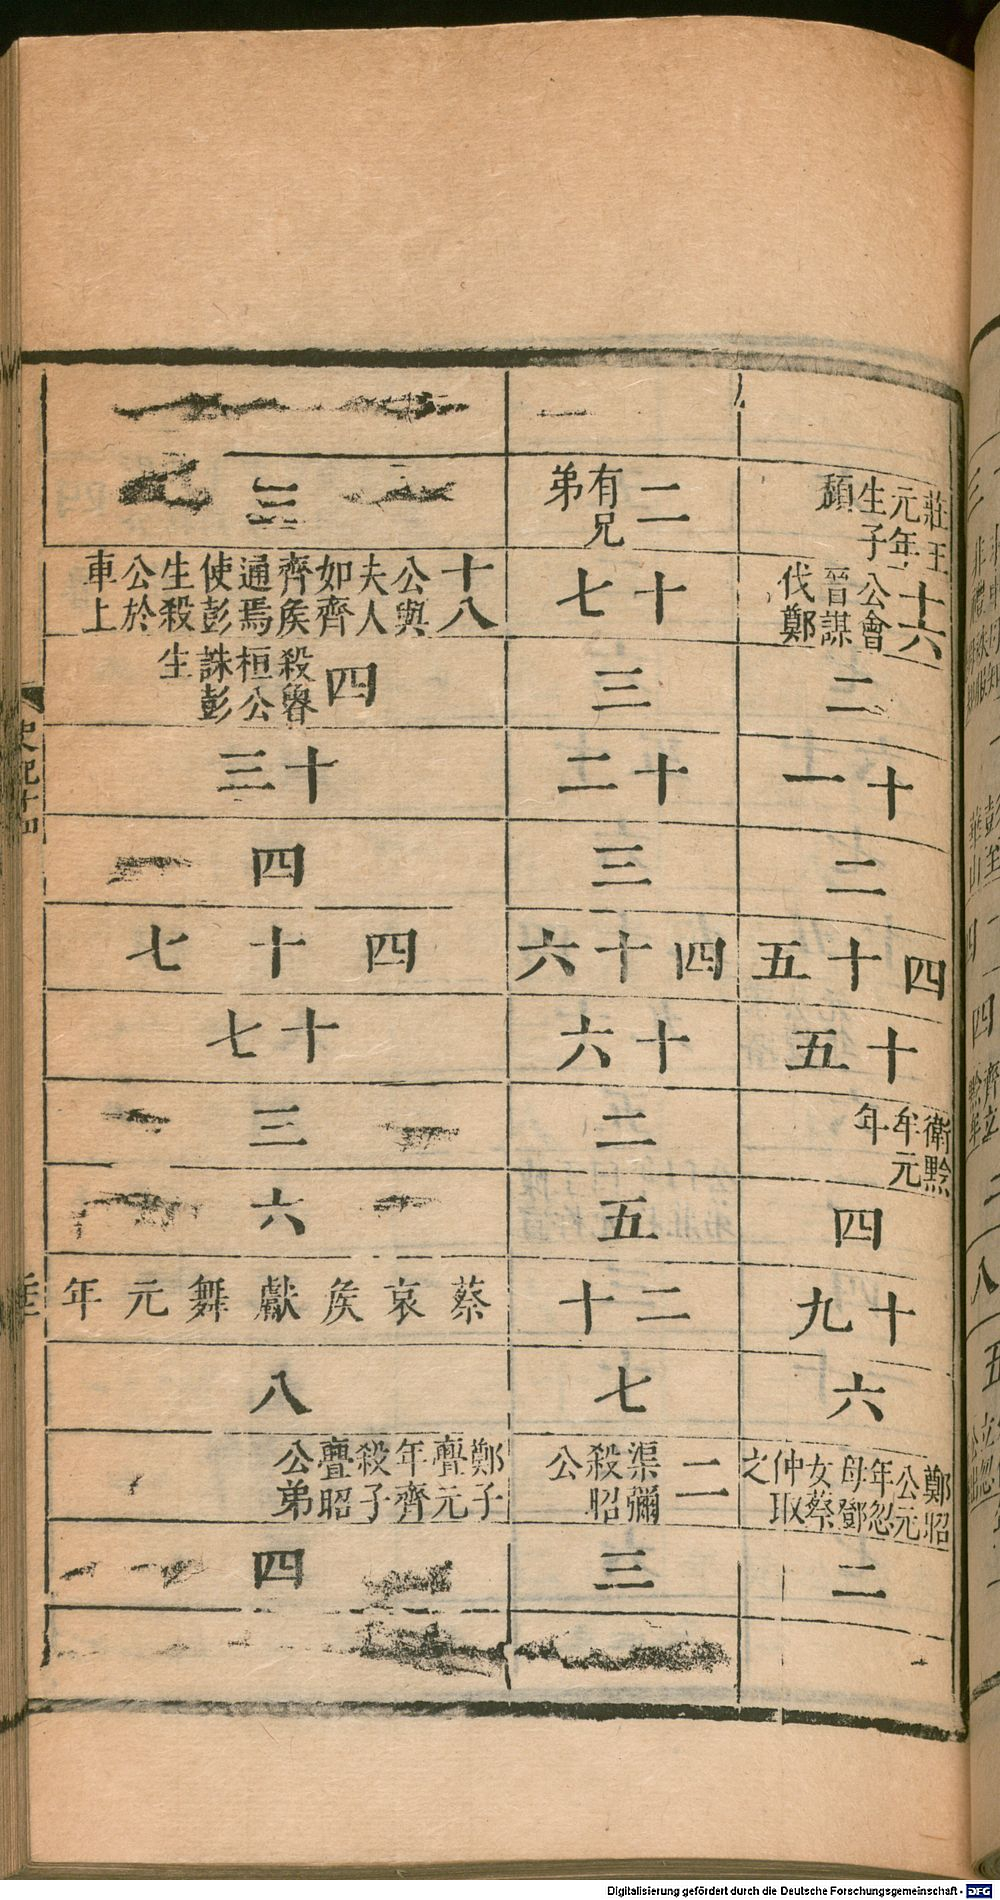 莊王
元年
生子
頹
十六
公會
晉謀
伐鄭
二
十一
二
四十五
十五
衛黔
牟元
年
四
十九
六
鄭昭
公元
年忽
母鄧
女蔡
仲取
之
二
二
有兄
弟
十七
三
十二
三
四十六
十六
二
五
二十
七
二
渠彌
殺昭
公
三
三
十八
公與
夫人
如齊
齊侯
通焉
使彭
生殺
公於
車上
四
殺魯
桓公
誅彭
生
十三
四
四十七
十七
三
六
蔡哀侯獻舞元年
八
鄭子
亹元
年齊
殺子
亹昭
公弟
四
史記十四
Digitalisierung gefördert durch die Deutsche Forschungsgemeinschaft - DFG